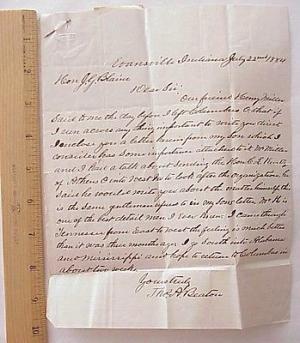 Evansville Indiana July 22nd 1884
Hon J. G. Blaine
Dear Sir,
Our friend Henry Miller
Said to me the day before I left Columbus O that if
I run across any thing important to write you direct
I inclose you a letter from my Son which I
consider has some importance attached to it Mr Miller
and I had a talk about sending the Hon C. L. Kurtz
of Athens O into West Va to look after the organization he
said he would write you about the matter himself this
is the same gentleman refered to in my Sons letter Mr K is
one of the best detail men I ever knew. I came through
Tennessee from East to west the feeling is much better
than it was three months ago. I go South into Alabama
and Mississippi and hope to return to Columbus in
about two weeks.
Yours truly
Thos A. Beaton